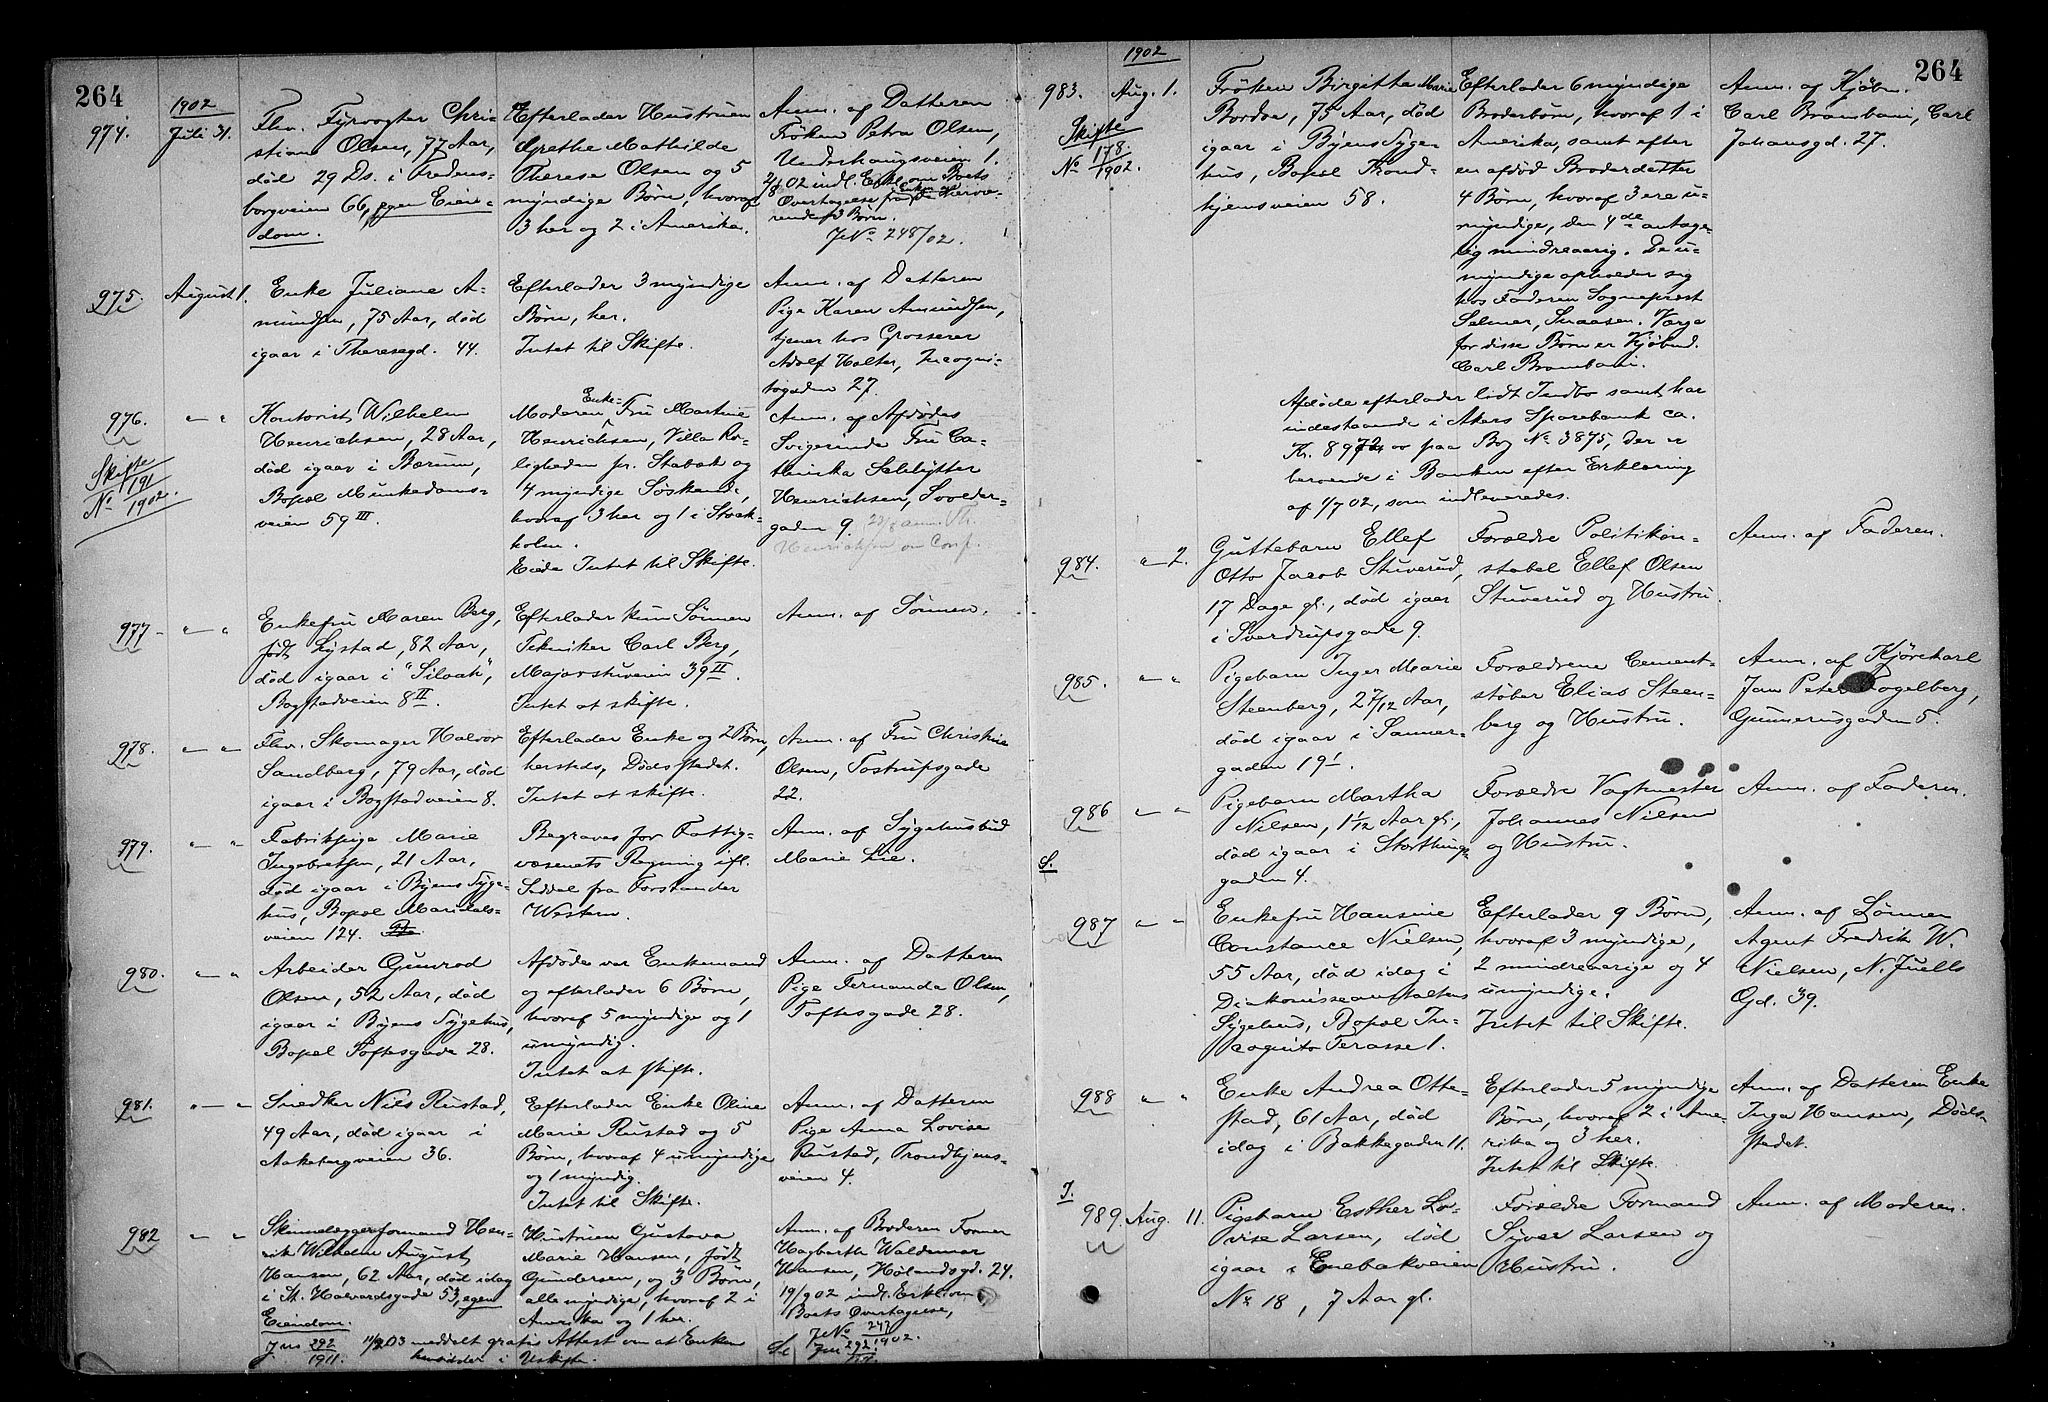 264
1902
974.
Juli 31.
Fhv. Fyrvogter Chri-
stian Olsen, 77 Aar,
død 29 Ds. i Fredens-
borgveien 66, egen Eien-
dom.
Efterlader Hustruen
Grethe Mathilde
Therese Olsen og 5
myndige Børn, hvoraf
3 her og 2 i Amerika.
Anm. af Datteren
Frøken Petra Olsen,
Underhaugsveien 1.
02 indl. Erkl. om Boets
Overtagelse fra Enken
J.No 248/02.
975.
August 1.
Enke Juliane A-
mundsen, 75 Aar, død
igaar i Theresegd. 44.
Efterlader 3 myndige
Børn, her.
Intet til Skifte.
Anm. af Datteren
Pige Karen Amundsen,
tjener hos Grosserer
Adolf Halter, Incogni-
togaden 27.
976.
Skifte
No 191/1902.
— "
Kontorist Wilhelm
Henrichsen, 28 Aar,
død igaar i Bærum,
Bopæl Munkedams-
veien 59 III.
Moderen Enke-Fru Martine
Henrichsen, Villa Ro-
ligheden pr. Stabæk og
4 myndige Søskende,
hvoraf 3 her og 1 i Stock-
holm.
Intet til Skifte.
Anm. af Afdødes
Svigerinde Fru Ca-
thinka Schlytter
Henrichsen, Svolder-
gaden 9. 22/8 anm. Th.
Henrichsen om Conf.
977.
" — "
Enkefru Maren Berg,
født Lystad, 82 Aar,
død igaar i "Siloah",
Bogstadveien 8 II.
Efterlader kun Sønnen
Tekniker Carl Berg,
Majorstuveien 39 II.
Intet at skifte.
Anm. af Sønnen.
978.
" — "
Fhv. Skomager Halvor
Sandberg, 79 Aar, død
igaar i Bogstadveien 8.
Efterlader Enke og 2 Børn,
hersteds, Dødsstedet.
Intet at skifte.
Anm. af Fru Christine
Olsen, Tostrupsgade
22.
979.
" — "
Fabrikpige Marie
Ingebretsen, 21 Aar,
død igaar i Byens Syge-
hus, Bopæl Maridals-
veien 124.
Begraves for Fattig-
væsenets Regning ifl.
Seddel fra Forstander
Western.
Anm. af Sygehusbud
Marie Lie.
980.
" — "
Arbeider Gunerod
Olsen, 52 Aar, død
igaar i Byens Sygehus,
Bopæl Toftesgade 28.
Afdøde var Enkemand
og efterlader 6 Børn,
hvoraf 5 myndige og 1
umyndig.
Intet at skifte.
Anm. af Datteren
Pige Fernanda Olsen,
Toftesgade 28.
981.
" — "
Snedker Nils Rustad,
49 Aar, død igaar i
Aakebergveien 36.
Efterlader Enke Oline
Marie Rustad og 5
Børn, hvoraf 4 umyndige
og 1 myndig.
Intet til Skifte.
Anm. af Datteren
Pige Anna Lovise
Rustad, Trondhjems-
veien 4.
982
— "
Skinnelæggerformand Hen-
rik Wilhelm August
Hansen, 62 Aar, død idag
i St. Halvardsgade 53, egen
Eiendom.
J No 292/1911.
Hustruen Gustava
Marie Hansen, født
Gundersen, og 3 Børn,
alle myndige, hvoraf 2 i
Amerika og 1 her.
03 meddelt gratis Attest om at Enken
hensidder i Uskifte.
Anm. af Broderen Former
Hagbarth Waldemar
Hansen, Hølandsgd. 24.
19/9 02 indl. Erkl. om
Boets Overtagelse,
J No 247/1902.
264
1902
983.
Skifte
No 178/1902.
Aug. 1.
Frøken Birgitte Marie
Bordoe, 75 Aar, død
igaar i Byens Syge-
hus, Bopæl Trond-
hjemsveien 58.
Efterlader 6 myndige
Broderbørn, hvoraf 1 i
Amerika, samt efter
en afdød Broderdatter
4 Børn, hvoraf 3 ere u-
myndige, den 4de antage-
lig mindreaarig. De u-
myndige opholder sig
hos Faderen Sogneprest
Selmer, Snaasen. Værge
for disse Børn er Kjøbmd.
Carl Brambani.
Anm. af Kjøbm.
Carl Brambani, Carl
Johansgd. 27.
Afdøde efterlader lidt Indbo samt har
indestaaende i Akers Sparebank ca.
Kr. 8972 paa Bog No 3875, der er
beroende i Banken efter Erklæring
af 1/7 02, som indleveredes.
984.
" — 2.
Guttebarn Ellef
Otto Jacob Stuverud,
17 Dage gl., død igaar
i Sverdrupsgade 9.
Forældre Politikon-
stabel Ellef Olsen
Stuverud og Hustru.
Anm. af Faderen.
985.
" — "
Pigebarn Inger Marie
Steenberg, 2 7/12 Aar,
død igaar i Sanner-
gaden 19 I.
Forældrene Cement-
støber Elias Steen-
berg og Hustru.
Anm. af Kjørekarl
Jans Peter Fogelberg,
Gunnerusgaden 5.
986
— "
Pigebarn Martha
Nilsen, 1 1/12 Aar gl.,
død igaar i Storthings-
gaden 4.
Forældre Vagtmester
Johannes Nilsen
og Hustru.
Anm. af Faderen.
S.
987
— "
Enkefru Hansine
Constance Nielsen,
55 Aar, død idag i
Diakonisseanstaltens
Sygehus, Bopæl In-
cognito Terasse 1.
Efterlader 9 Børn,
hvoraf 3 myndige,
2 mindreaarige og 4
umyndige.
Intet til Skifte.
Anm. af Sønnen
Agent Fredrik W.
Nielsen, N. Juells
Gd. 39.
988
— "
Enke Andrea Otte-
stad, 61 Aar, død
idag i Bakkegaden 11.
Efterlader 5 myndige
Børn, hvoraf 2 i Ame-
rika og 3 her.
Intet til Skifte.
Anm. af Datteren Enke
Inga Hansen, Døds-
stedet.
J.
989.
Aug. 11.
Pigebarn Esther Lo-
vise Larsen, død
igaar i Enebakveien
No 18, 7 Aar gl.
Forældre Formand
Syver Larsen og
Hustru.
Anm. af Moderen.